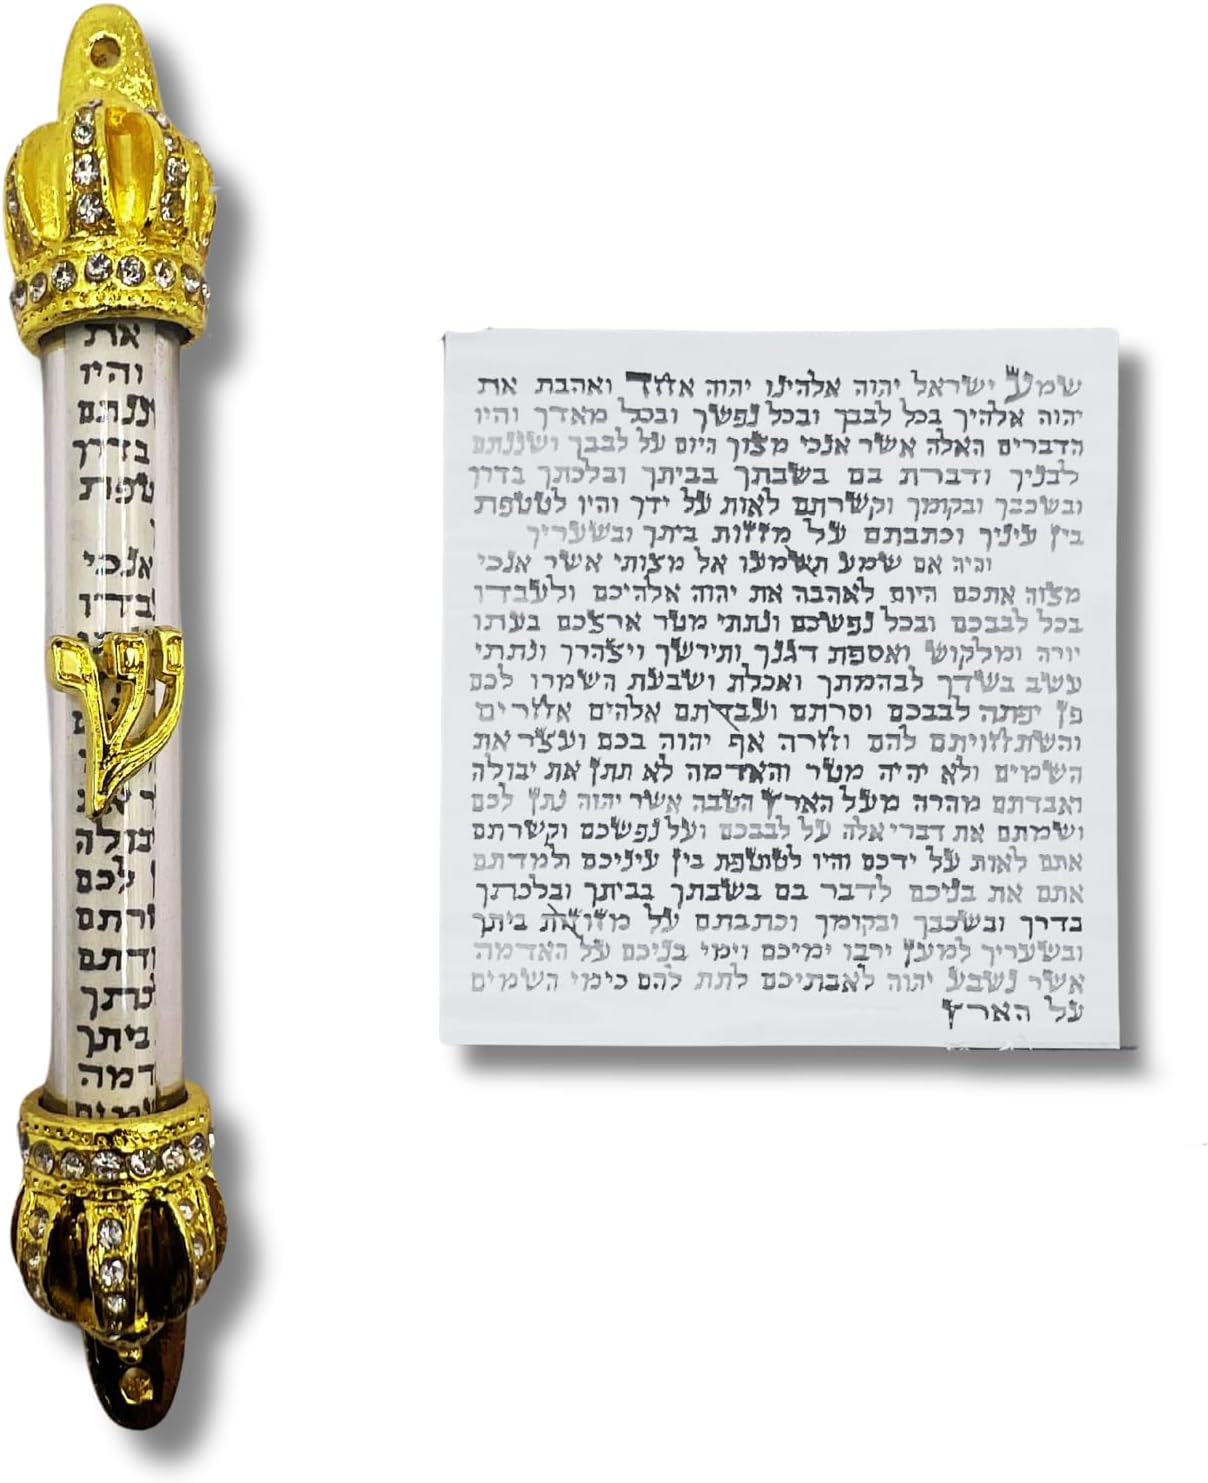 את
והיו
ננתם
בדרך
טפת
אנכי
בדו
ש
בולה
לכם
רתם
דתם
כתך
ביתך
דמה
שמע ישראל יהוה אלהינו יהוה אחד ואהבת את
יהוה אלהיך בכל לבבך ובכל נפשך ובכל מאדך והיו
הדברים האלה אשר אנכי מצוך היום על לבבך ושננתם
לבניך ודברת בם בשבתך בביתך ובלכתך בדרך
ובשכבך ובקומך וקשרתם לאות על ידך והיו לטטפת
בין עיניך וכתבתם על מזזות ביתך ובשעריך
והיה אם שמע תשמעו אל מצותי אשר אנכי
מצוה אתכם היום לאהבה את יהוה אלהיכם ולעבדו
בכל לבבכם ובכל נפשכם ונתתי מטר ארצכם בעתו
יורה ומלקוש ואספת דגנך ותירשך ויצהרך ונתתי
עשב בשדך לבהמתך ואכלת ושבעת השמרו לכם
פן יפתה לבבכם וסרתם ועבדתם אלהים אחרים
והשתחויתם להם וחרה אף יהוה בכם ועצר את
השמים ולא יהיה מטר והאדמה לא תתן את יבולה
ואבדתם מהרה מעל הארץ הטבה אשר יהוה נתן לכם
ושמתם את דברי אלה על לבבכם ועל נפשכם וקשרתם
אתם לאות על ידכם והיו לטוטפת בין עיניכם ולמדתם
אתם את בניכם לדבר בם בשבתך בביתך ובלכתך
בדרך ובשכבך ובקומך וכתבתם על מזוזות ביתך
ובשעריך למען ירבו ימיכם וימי בניכם על האדמה
אשר נשבע יהוה לאבתיכם לתת להם כימי השמים
על הארץ